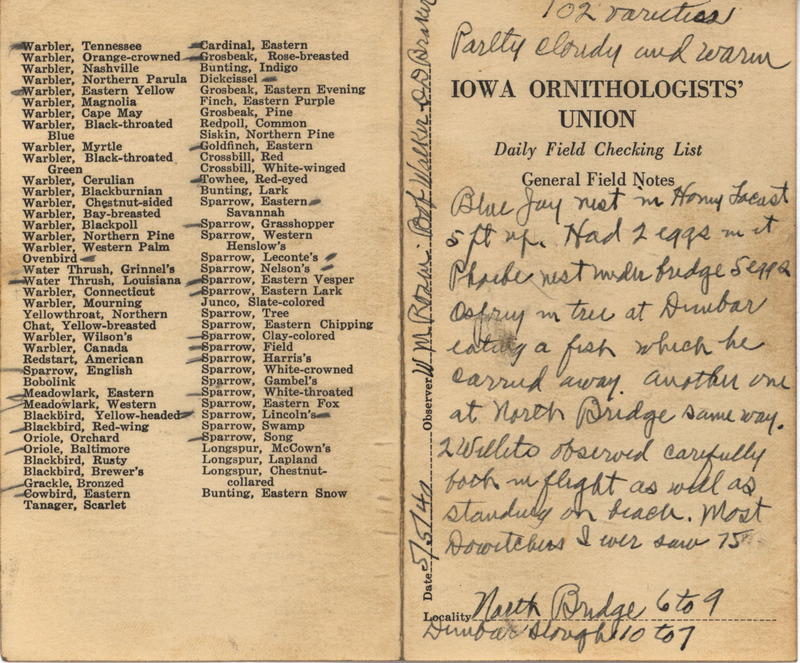 Warbler, Tennessee
Warbler, Orange-crowned
Warbler, Nashville
Warbler, Northern Parula
Warbler, Eastern Yellow
Warbler, Magnolia
Warbler, Cape May
Warbler, Black-throated
Blue
Warbler, Myrtle
Warbler, Black-throated
Green
Warbler, Cerulian
Warbler, Blackburnian
Warbler, Chestnut-sided
Warbler, Bay-breasted
Warbler, Blackpoll
Warbler, Northern Pine
Warbler, Western Palm
Ovenbird
Water Thrush, Grinnel's
Water Thrush, Louisiana
Warbler, Connecticut
Warbler, Mourning
Yellowthroat, Northern
Chat, Yellow-breasted
Warbler, Wilson's
Warbler, Canada
Redstart, American
Sparrow, English
Bobolink
Meadowlark, Eastern
Meadowlark, Western
Blackbird, Yellow-headed
Blackbird, Red-wing
Oriole, Orchard
Oriole, Baltimore
Blackbird, Rusty
Blackbird, Brewer's
Grackle, Bronzed
Cowbird, Eastern
Tanager, Scarlet
Cardinal, Eastern
Grosbeak, Rose-breasted
Bunting, Indigo
Dickcissel
Grosbeak, Eastern Evening
Finch, Eastern Purple
Grosbeak, Pine
Redpoll, Common
Siskin, Northern Pine
Goldfinch, Eastern
Crossbill, Red
Crossbill, White-winged
Towhee, Red-eyed
Bunting, Lark
Sparrow, Eastern
Savannah
Sparrow, Grasshopper
Sparrow, Western
Henslow's
Sparrow, Leconte's
Sparrow, Nelson's
Sparrow, Eastern Vesper
Sparrow, Eastern Lark
Junco, Slate-colored
Sparrow, Tree
Sparrow, Eastern Chipping
Sparrow, Clay-colored
Sparrow, Field
Sparrow, Harris's
Sparrow, White-crowned
Sparrow, Gambel's
Sparrow, White-throated
Sparrow, Eastern Fox
Sparrow, Lincoln's
Sparrow, Swamp
Sparrow, Song
Longspur, McCown's
Longspur, Lapland
Longspur, Chestnut-
collared
Bunting, Eastern Snow
Date 5/5/40 Observer W M Rosene Walker
102 varieties
Partly cloudy and warm
IOWA ORNITHOLOGISTS'
UNION
Daily Field Checking List
General Field Notes
Blue Jay nest in Honey Locust
5 ft up. Had 2 eggs in it
Phoebe nest under bridge 5 eggs
Osprey in tree at Dunbar
eating a fish which he
carried away. Another one
at North Bridge same way.
2 Willets observed carefully
both in flight as well as
standing on beach. Most
Dowitchers I ever saw 75
Locality North Bridge 6 to 9
Dunbar Slough 10 to 7